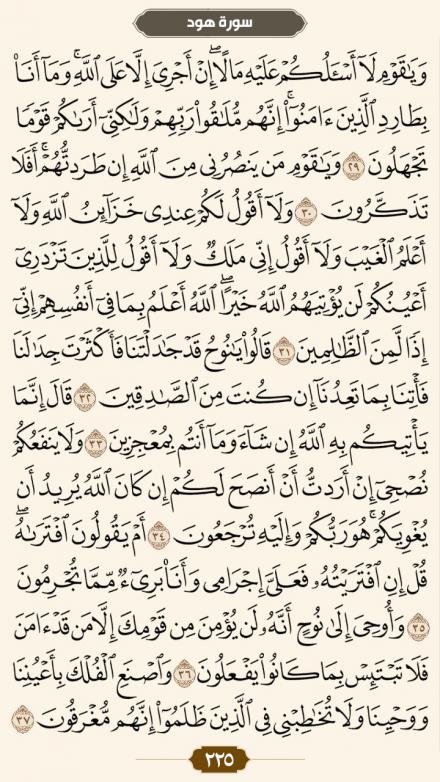 سورة هود
وَيَٰقَوْمِ لَآ أَسْـَٔلُكُمْ عَلَيْهِ مَالًا ۖ إِنْ أَجْرِىَ إِلَّا عَلَى ٱللَّهِ ۚ وَمَآ أَنَا۠
بِطَارِدِ ٱلَّذِينَ ءَامَنُوٓا۟ ۚ إِنَّهُم مُّلَٰقُوا۟ رَبِّهِمْ وَلَٰكِنِّىٓ أَرَىٰكُمْ قَوْمًا
تَجْهَلُونَ ٢٩ وَيَٰقَوْمِ مَن يَنصُرُنِى مِنَ ٱللَّهِ إِن طَرَدتُّهُمْ ۚ أَفَلَا
تَذَكَّرُونَ ٣٠ وَلَآ أَقُولُ لَكُمْ عِندِى خَزَآئِنُ ٱللَّهِ وَلَآ
أَعْلَمُ ٱلْغَيْبَ وَلَآ أَقُولُ إِنِّى مَلَكٌ وَلَآ أَقُولُ لِلَّذِينَ تَزْدَرِىٓ
أَعْيُنُكُمْ لَن يُؤْتِيَهُمُ ٱللَّهُ خَيْرًا ۖ ٱللَّهُ أَعْلَمُ بِمَا فِىٓ أَنفُسِهِمْ ۖ إِنِّىٓ
إِذًا لَّمِنَ ٱلظَّٰلِمِينَ ٣١ قَالُوا۟ يَٰنُوحُ قَدْ جَٰدَلْتَنَا فَأَكْثَرْتَ جِدَٰلَنَا
فَأْتِنَا بِمَا تَعِدُنَآ إِن كُنتَ مِنَ ٱلصَّٰدِقِينَ ٣٢ قَالَ إِنَّمَا
يَأْتِيكُم بِهِ ٱللَّهُ إِن شَآءَ وَمَآ أَنتُم بِمُعْجِزِينَ ٣٣ وَلَا يَنفَعُكُمْ
نُصْحِىٓ إِنْ أَرَدتُّ أَنْ أَنصَحَ لَكُمْ إِن كَانَ ٱللَّهُ يُرِيدُ أَن
يُغْوِيَكُمْ ۚ هُوَ رَبُّكُمْ وَإِلَيْهِ تُرْجَعُونَ ٣٤ أَمْ يَقُولُونَ ٱفْتَرَىٰهُ ۖ
قُلْ إِنِ ٱفْتَرَيْتُهُۥ فَعَلَىَّ إِجْرَامِى وَأَنَا۠ بَرِىٓءٌ مِّمَّا تُجْرِمُونَ
٣٥ وَأُوحِىَ إِلَىٰ نُوحٍ أَنَّهُۥ لَن يُؤْمِنَ مِن قَوْمِكَ إِلَّا مَن قَدْ ءَامَنَ
فَلَا تَبْتَئِسْ بِمَا كَانُوا۟ يَفْعَلُونَ ٣٦ وَٱصْنَعِ ٱلْفُلْكَ بِأَعْيُنِنَا
وَوَحْيِنَا وَلَا تُخَٰطِبْنِى فِى ٱلَّذِينَ ظَلَمُوٓا۟ ۚ إِنَّهُم مُّغْرَقُونَ ٣٧
٢٢٥